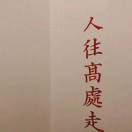 人往髙處走